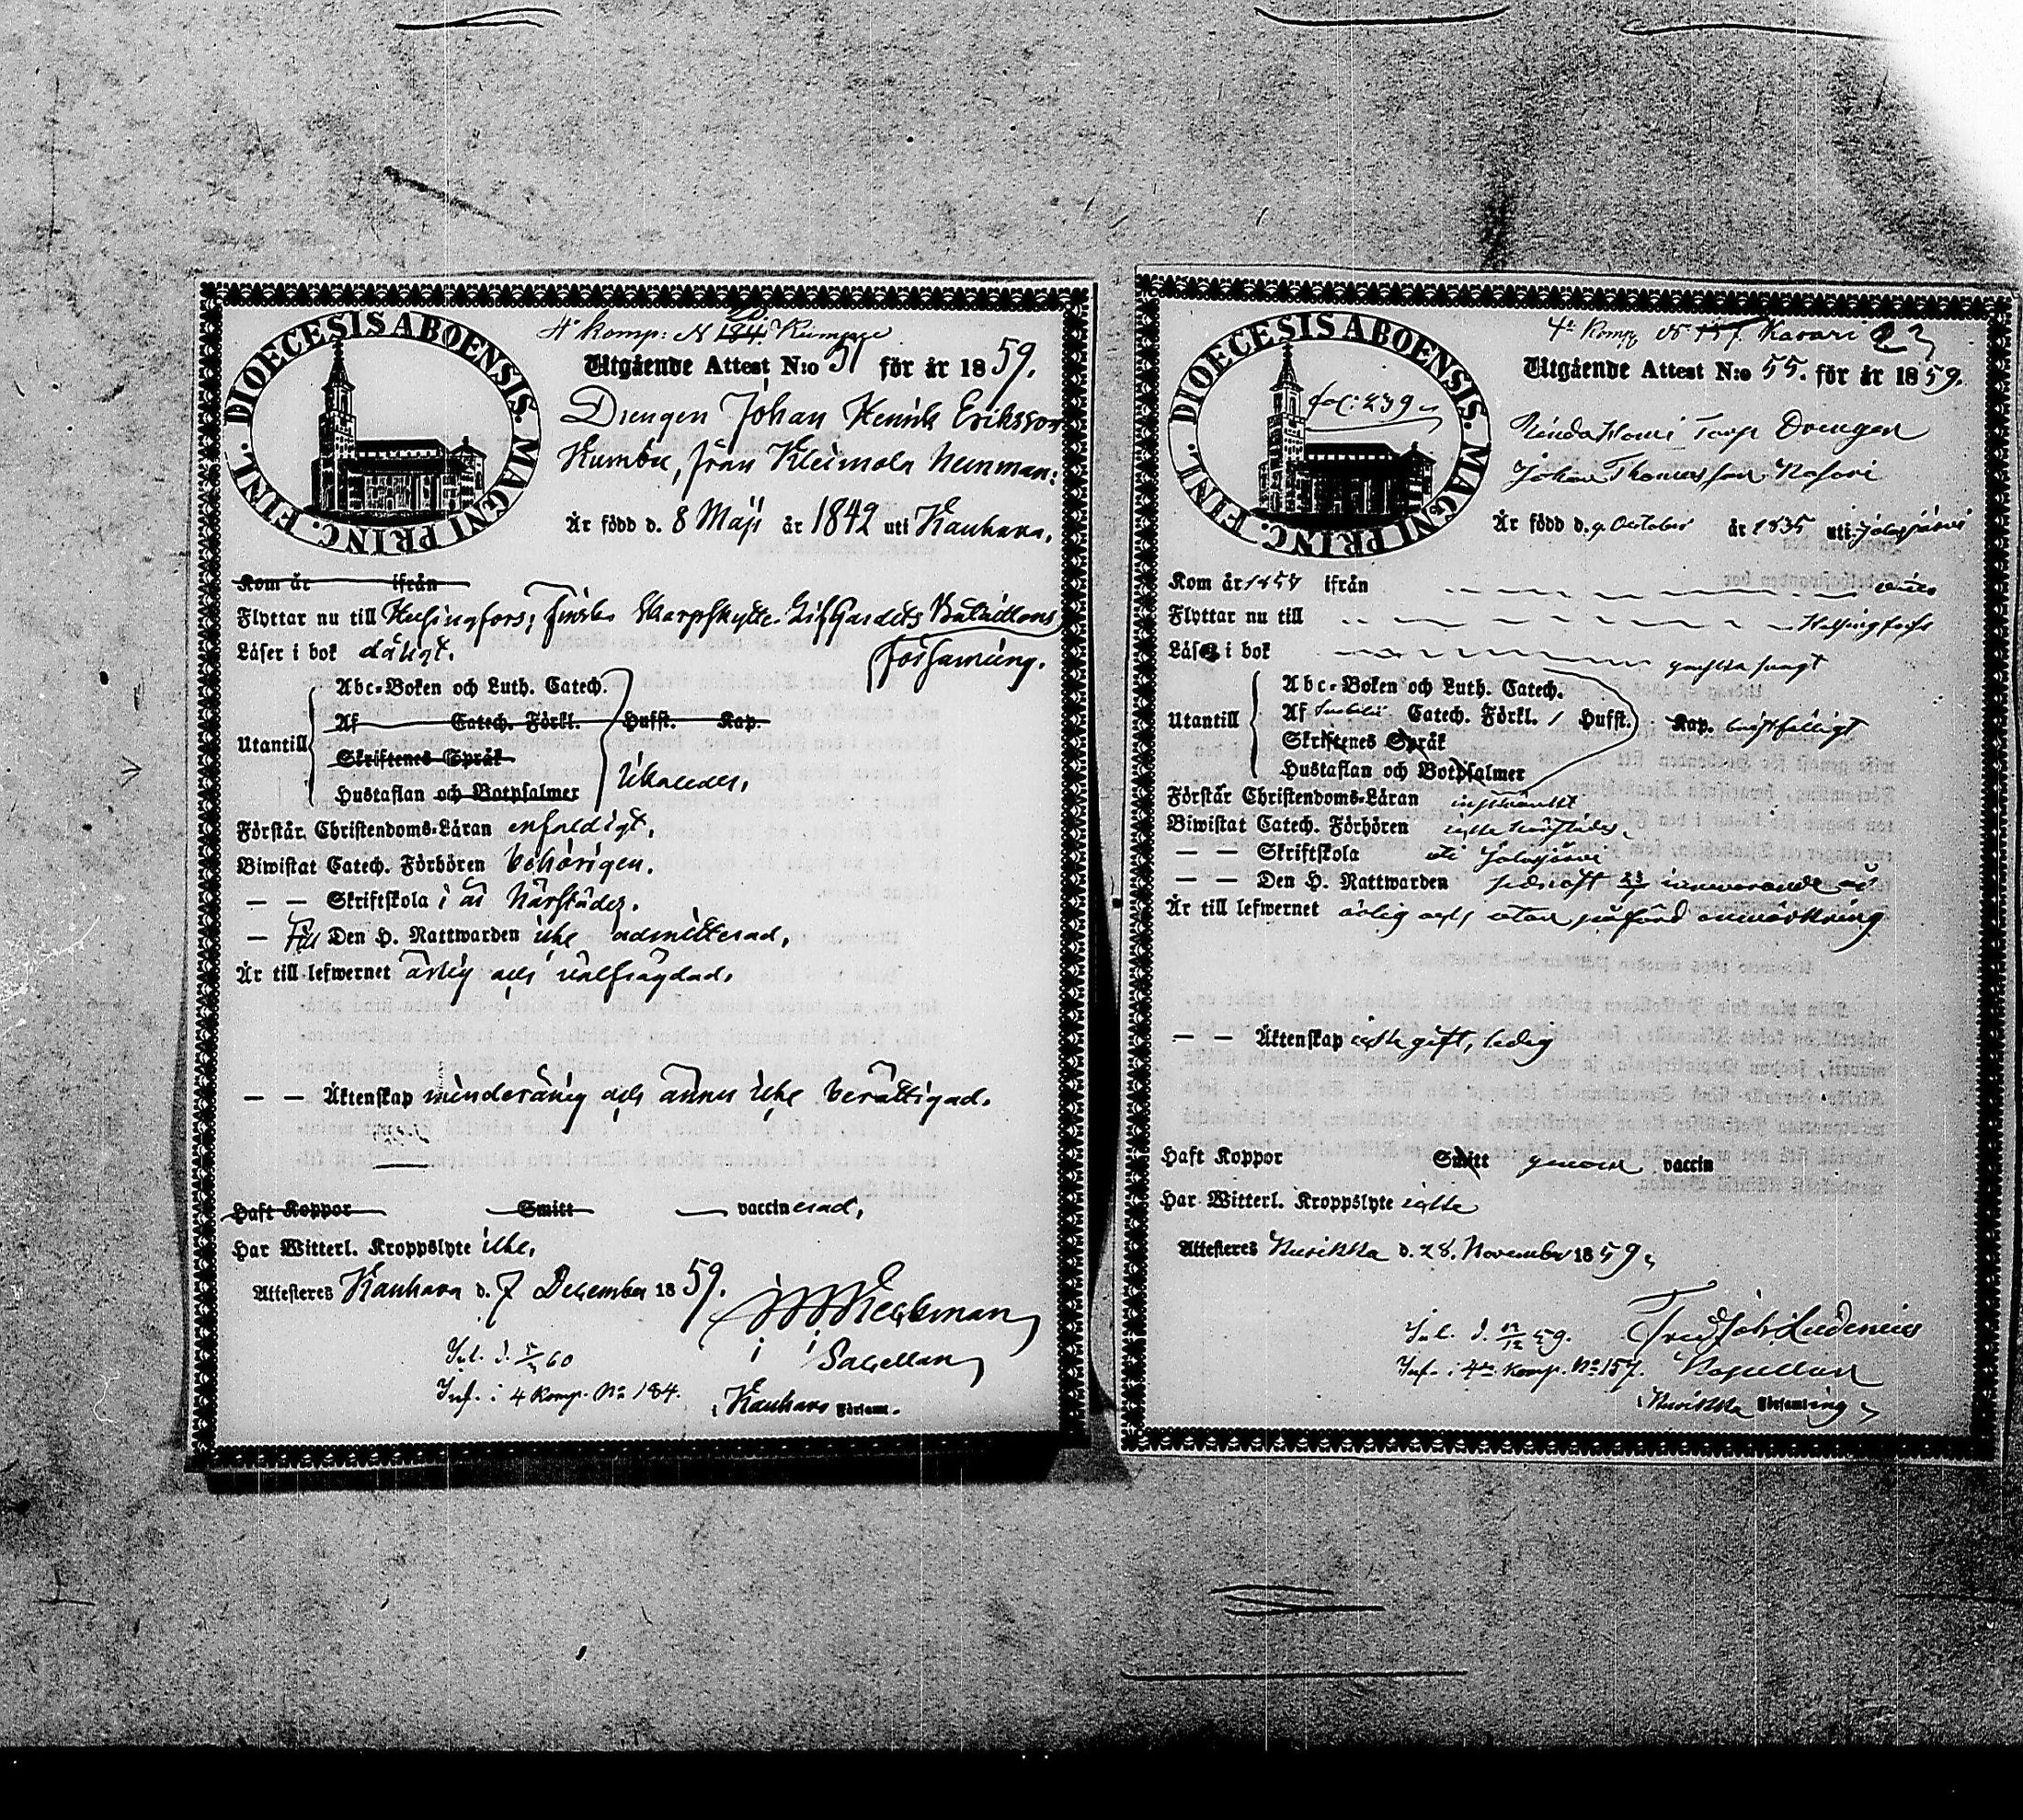 DIOECESIS ABOENSIS. MAGNI PRINC. FINL.
4e Komp: N 184. 20. Kumpu
Utgående Attest N:o 51 för år 1859.
Drengen Johan Henrik Eriksson
Kumbu, från Kleimola
Är född d. 8 Maji år 1842 uti Kauhava.
Kom år ifrån
Flyttar nu till Helsingfors, Finska Skarpskytte Lif Gardets Bataillons
Församling.
Läser i bok dåligt.
Utantill
Abc-Boken och Luth. Catech.
Af Catech. Förkl. Hufst. Kap.
Skriftenes Språk
Hustaflan och Botpsalmer
likaledes.
Förstår Christendoms-Läran enfaldigt.
Biwistat Catech. Förhören behörigen.
— — Skriftskola i år härstädes.
— Till Den H. Nattwarden icke admitterad,
Är till lefwernet ärlig och välfrägdad.
— — Äktenskap minderårig och ännu icke berättigad.
Haft Koppor Smitt vaccinerad,
Har Witterl. Kroppslyte icke,
Attesteres Kauhava d. 7 December 1859.
Sacellan
i Kauhava Församl.
Inf. i 4 Komp. No 184.
DIOECESIS ABOENSIS. MAGNI PRINC. FINL.
fol: 239
4e Komp No 157. Kasari 23
Utgående Attest N:o 55. för år 1859.
Torp Drengen
Johan Thomasson
Är född d. 9 October år 1835 uti Jalasjärvi
Kom år ifrån
Flyttar nu till Helsingfors
Läser i bok ganska svagt
Utantill
Abc-Boken och Luth. Catech.
Af Catech. Förkl. / Hufst. Kap. bristfälligt
Skriftenes Språk
Hustaflan och Botpsalmer
Förstår Christendoms-Läran inskränkt
Biwistat Catech. Förhören icke härstädes.
— — Skriftskola uti Jalasjärvi
— — Den H. Nattwarden sednast innevarande år
Är till lefwernet ärlig och utan anmärkning
— — Äktenskap icke gift, ledig
Haft Koppor Smitt genom vaccin
Har Witterl. Kroppslyte icke
Attesteres Kurikka d. 28. November 1859.
Kapellan
i Kurikka Församling
Inf. i 4de Komp. No 157.